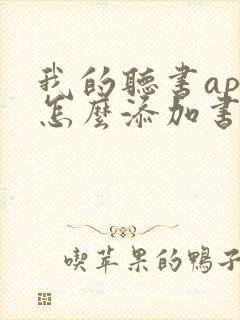 我的聽書ap
怎麼添加書
喫苹果的鴨子